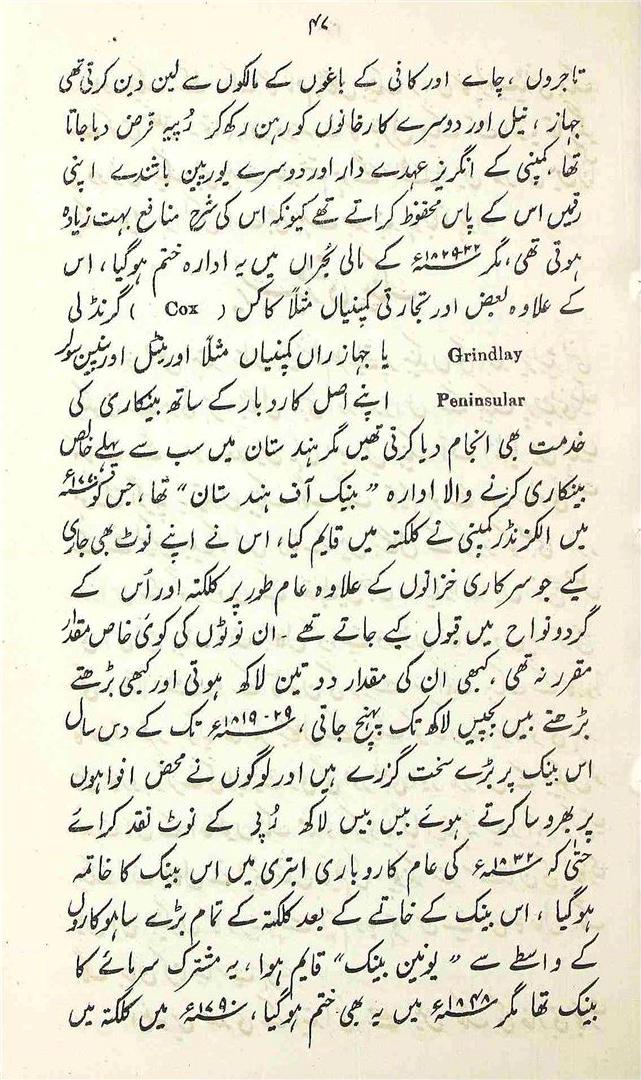 ۴۷
تاجروں ، چاے اور کافی کے باغوں کے مالکوں سے لین دین کرتی تھی
جہاز ، نیل اور دوسرے کارخانوں کو رہن رکھ کر رُپیہ قرض دیا جاتا
تھا ، کمپنی کے انگریز عہدے دار اور دوسرے یورپین باشندے اپنی
رقمیں اس کے پاس محفوظ کراتے تھے کیونکہ اس کی شرحِ منافع بہت زیادہ
ہوتی تھی ، مگر ۳۲-۱۸۲۹ء کے مالی بُحراں میں یہ ادارہ ختم ہوگیا ، اس
کے علاوہ بعض اور تجارتی کمپنیاں مثلاً کاکس ( Cox ) گرنڈلی
Grindlay یا جہاز راں کمپنیاں مثلاً اورینٹل اور پننسولر
Peninsular اپنے اصل کاروبار کے ساتھ بینکاری کی
خدمت بھی انجام دیا کرتی تھیں مگر ہندستان میں سب سے پہلے خالص
بینکاری کرنے والا ادارہ ” بینک آف ہندستان “ تھا ، جس کو ۱۷۷۰ء
میں الگزنڈر کمپنی نے کلکتہ میں قایم کیا ، اس نے اپنے نوٹ بھی جاری
کیے جو سرکاری خزانوں کے علاوہ عام طور پر کلکتہ اور اُس کے
گرد و نواح میں قبول کیے جاتے تھے ۔ ان نوٹوں کی کوئ خاص مقدار
مقرر نہ تھی ، کبھی ان کی مقدار دو تین لاکھ ہوتی اور کبھی بڑھتے
بڑھتے بیس پچیس لاکھ تک پہنچ جاتی ، ۲۹-۱۸۱۹ء تک کے دس سال
اس بینک پر بڑے سخت گزرے ہیں اور لوگوں نے محض افواہوں
پر بھروسا کرتے ہوئے بیس بیس لاکھ رُپی کے نوٹ نقد کرائے
حتیٰ کہ ۱۸۳۲ء کی عام کاروباری ابتری میں اس بینک کا خاتمہ
ہوگیا ، اس بینک کے خاتمے کے بعد کلکتہ کے تمام بڑے ساہوکاروں
کے واسطے سے ” یونین بینک “ قایم ہوا ، یہ مشترک سرمائے کا
بینک تھا مگر ۱۸۴۸ء میں یہ بھی ختم ہوگیا ، ۱۷۹۰ء میں کلکتہ میں